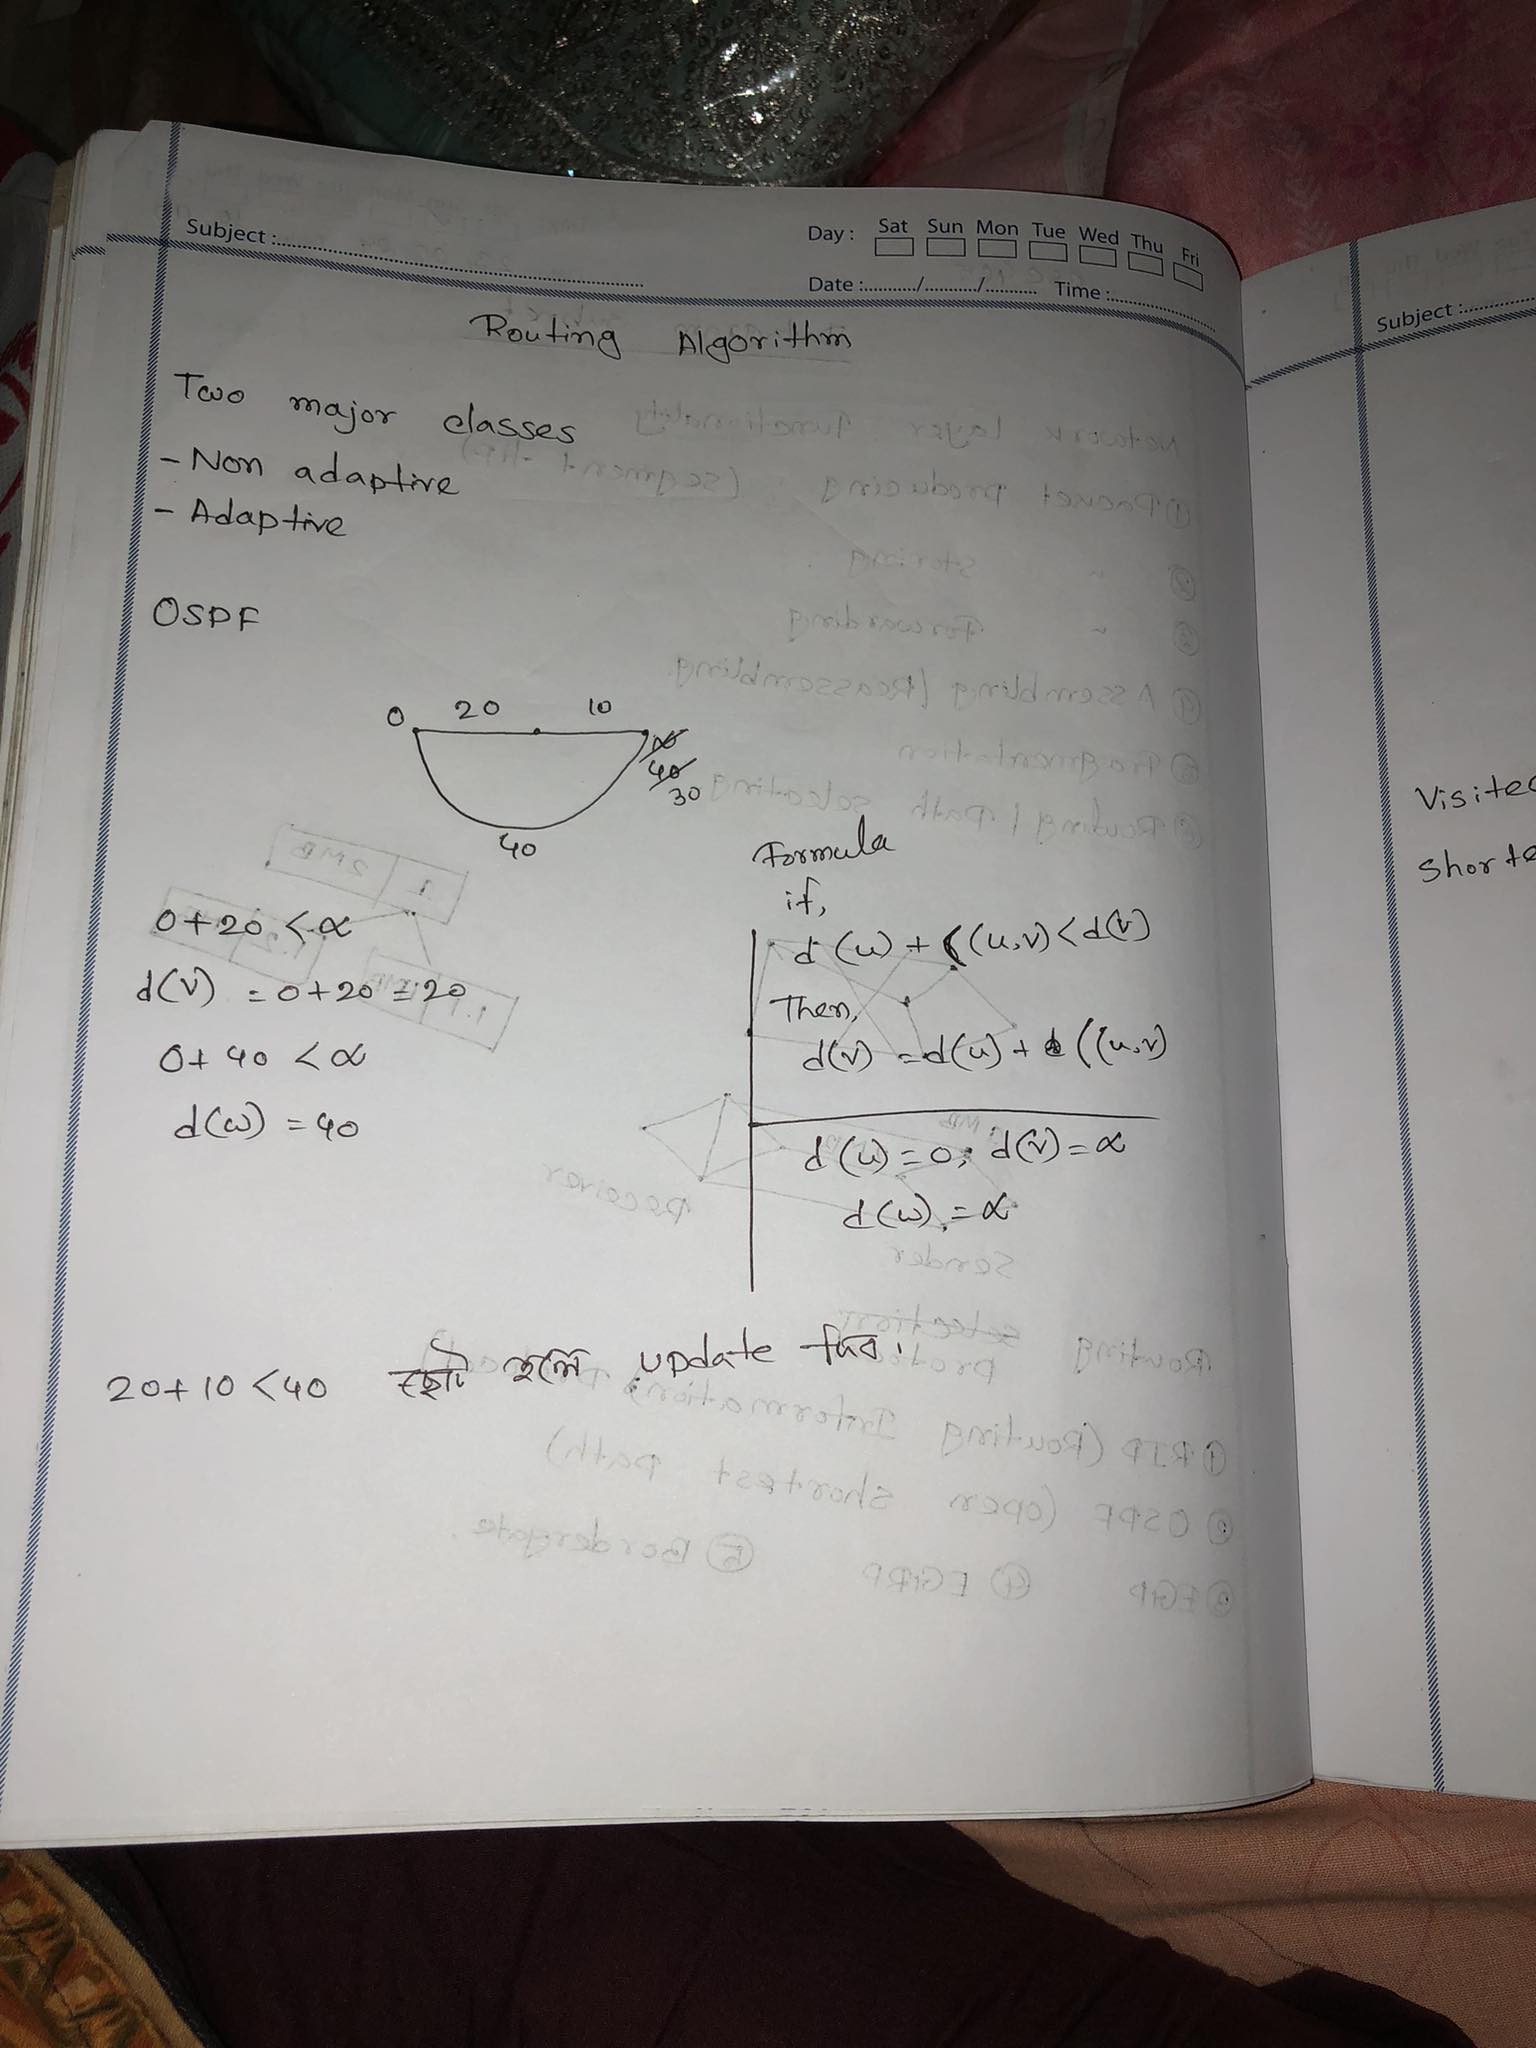 Subject :
Day : Sat Sun Mon Tue Wed Thu Fri
Date : / / Time :
Routing Algorithm
Two major classes
- Non adaptive
- Adaptive
OSPF
0 20 10
∝
40
30
40
0+20 <∝
d(v) = 0+20 = 20
0+ 40 <∝
d(w) = 40
Formula
if,
d (u) + ((u,v) <d(v)
Then,
d(v) = d(u) + ((u,v)
d (u) = 0; d(v) = ∝
d(w) = ∝
20+10 <40 হলে update
Subject :
Visited
Shorte